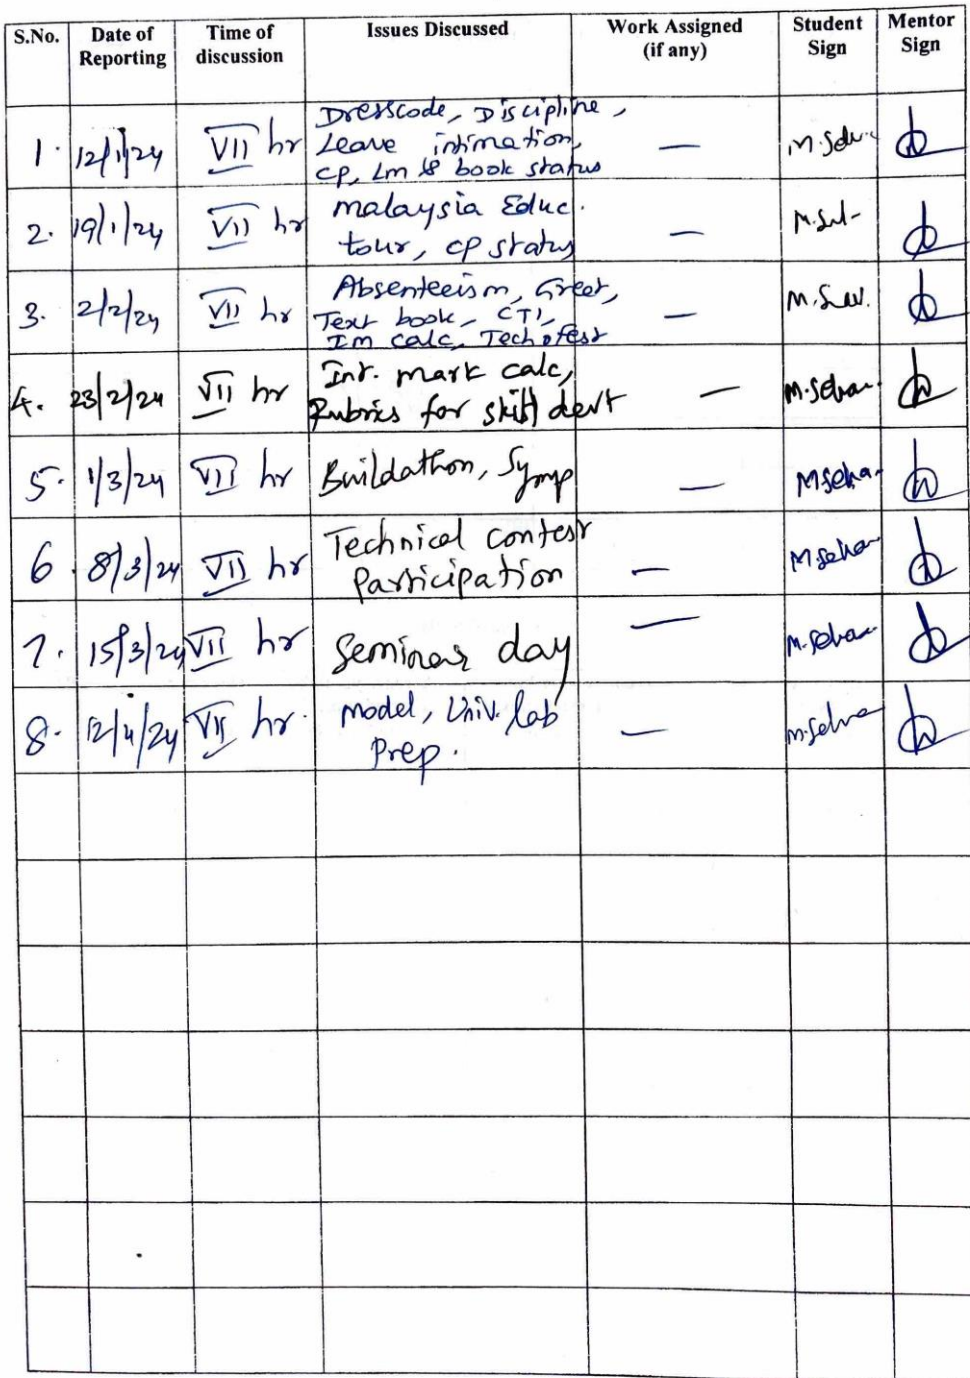 S.No. Date of Reporting Time of discussion Issues Discussed Work Assigned (if any) Student Sign Mentor Sign
1. 12/1/24 VII hr Dresscode, Discipline, Leave intimation, CP, Lm & book status —
2. 19/1/24 VII hr malaysia Educ. tour, CP status —
3. 2/2/24 VII hr Absenteeism, Greet, Text book, CT1, Im calc, Techofest —
4. 23/2/24 VII hr Int. mark calc, Rubrics for skill devt —
5. 1/3/24 VII hr Buildathon, Symp —
6. 8/3/24 VII hr Technical contest Participation —
7. 15/3/24 VII hr Seminar day —
8. 12/4/24 VII hr. model, Univ. lab Prep. —